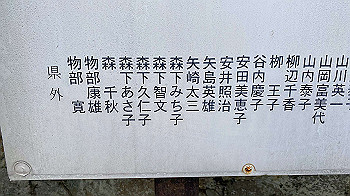 山川英一
山岡富美代
山内泰子
柳辺千香
柳王子
谷内慶子
安田美恵子
安井照治
矢島英雄
矢崎太三
森下みち子
森下智文
森下久仁子
森下あさ子
森千秋
物部康雄
物部寛
県外